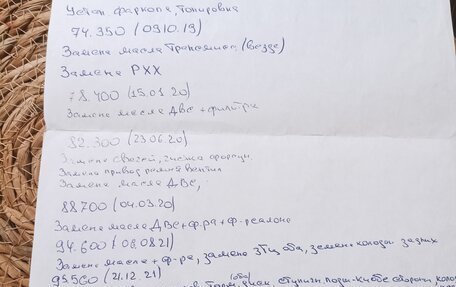 Устан фаркопа, тонировка
74.350 (09.10.19)
Замена масла Трансмисс, (везде)
Замена РХХ
78.400 (15.01.20)
Замена масла ДВС + фильтра
82.300 (23.06.20)
Замена свечей, чистка
Замена привод ремней
Замена масла ДВС,
88700 (04.03.20)
Замена масла ДВС + ф-ра + ф-ра салона
94.600 (08.08.21)
Замена масла + ф-ра, замена оба, замена колодок задних
95.500 (21.12.21)
(оба)
торм. диск. ступичн. подш-к